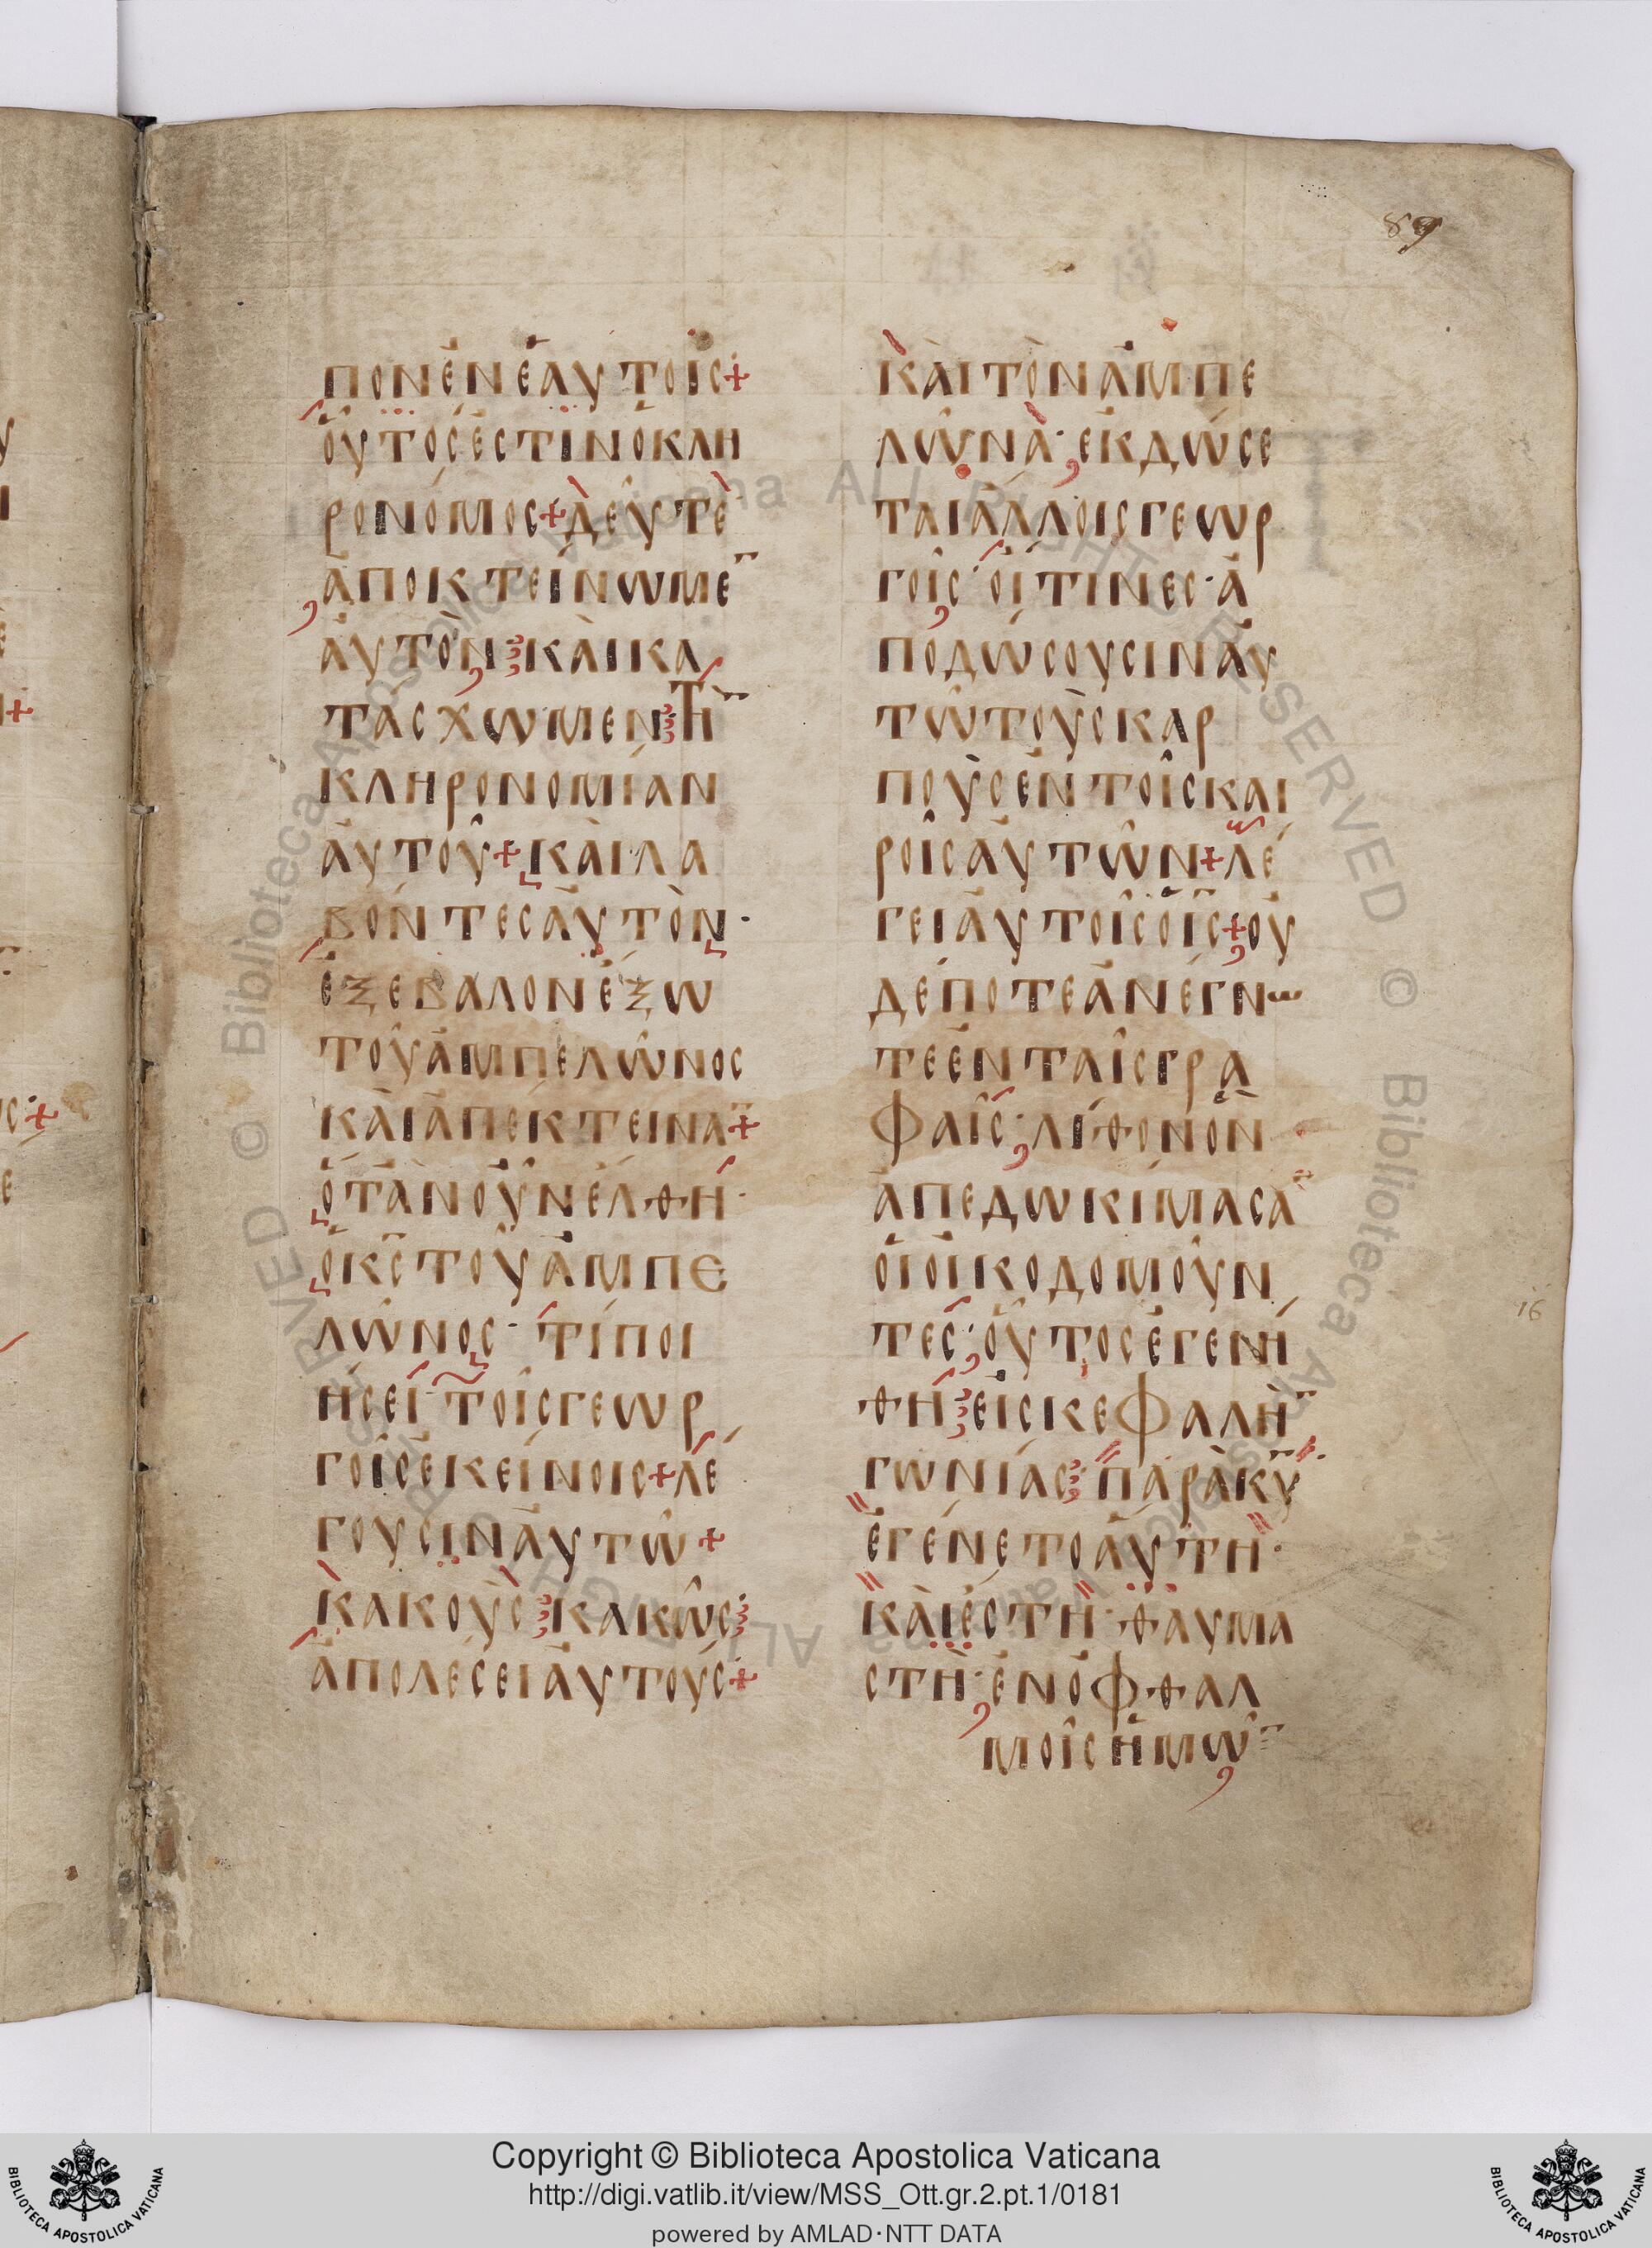 89
ΠΟΝΕΝΕΑΥΤΟΙΣ+
ΟΥΤΟΣΕΣΤΙΝΟΚΛΗ
ΡΟΝΟΜΟΣ+ΔΕΥΤΕ
ΑΠΟΚΤΕΙΝΩΜΕ
ΑΥΤΟΝ ΚΑΙΚΑ
ΤΑΣΧΩΜΕΝ ΤΗ
ΚΛΗΡΟΝΟΜΙΑΝ
ΑΥΤΟΥ+ΚΑΙΛΑ
ΒΟΝΤΕΣΑΥΤΟΝ·
ΕΞΕΒΑΛΟΝΕΞΩ
ΤΟΥΑΜΠΕΛΩΝΟΣ
ΚΑΙΑΠΕΚΤΕΙΝΑ+
ΟΤΑΝΟΥΝΕΛΘΗ·
ΟΚΣΤΟΥΑΜΠΕ
ΛΩΝΟΣ· ΤΙΠΟΙ
ΗΣΕΙ ΤΟΙΣΓΕΩΡ
ΓΟΙΣΕΚΕΙΝΟΙΣ+ΛΕ
ΓΟΥΣΙΝΑΥΤΩ+
ΚΑΚΟΥΣ ΚΑΚΩΣ
ΑΠΟΛΕΣΕΙΑΥΤΟΥΣ+
ΚΑΙΤΟΝΑΜΠΕ
ΛΩΝΑ·ΕΚΔΩΣΕ
ΤΑΙΑΛΛΟΙΣΓΕΩΡ
ΓΟΙΣ·ΟΙΤΙΝΕΣ·Α
ΠΟΔΩΣΟΥΣΙΝΑΥ
ΤΩΤΟΥΣΚΑΡ
ΠΟΥΣΕΝΤΟΙΣΚΑΙ
ΡΟΙΣΑΥΤΩΝ+ΛΕ
ΓΕΙΑΥΤΟΙΣΟΙΣ+ΟΥ
ΔΕΠΟΤΕΑΝΕΓΝω
ΤΕΕΝΤΑΙΣΓΡΑ
ΦΑΙΣ·ΛΙΘΟΝΟΝ
ΑΠΕΔΩΚΙΜΑΣΑ
ΟΙΟΙΚΟΔΟΜΟΥΝ
ΤΕΣ·ΟΥΤΟΣΕΓΕΝΙ
ΘΗ ΕΙΣΚΕΦΑΛΗ
ΓΩΝΙΑΣ ΠΑΡΑΚΥ
ΕΓΕΝΕΤΟΑΥΤΗ·
ΚΑΙΕΣΤΗ·ΘΑΥΜΑ
ΣΤΗ·ΕΝΟΦΘΑΛ
ΜΟΙΣΗΜΩ
16
Copyright © Biblioteca Apostolica Vaticana
http://digi.vatlib.it/view/MSS_Ott.gr.2.pt.1/0181
powered by AMLAD·NTT DATA